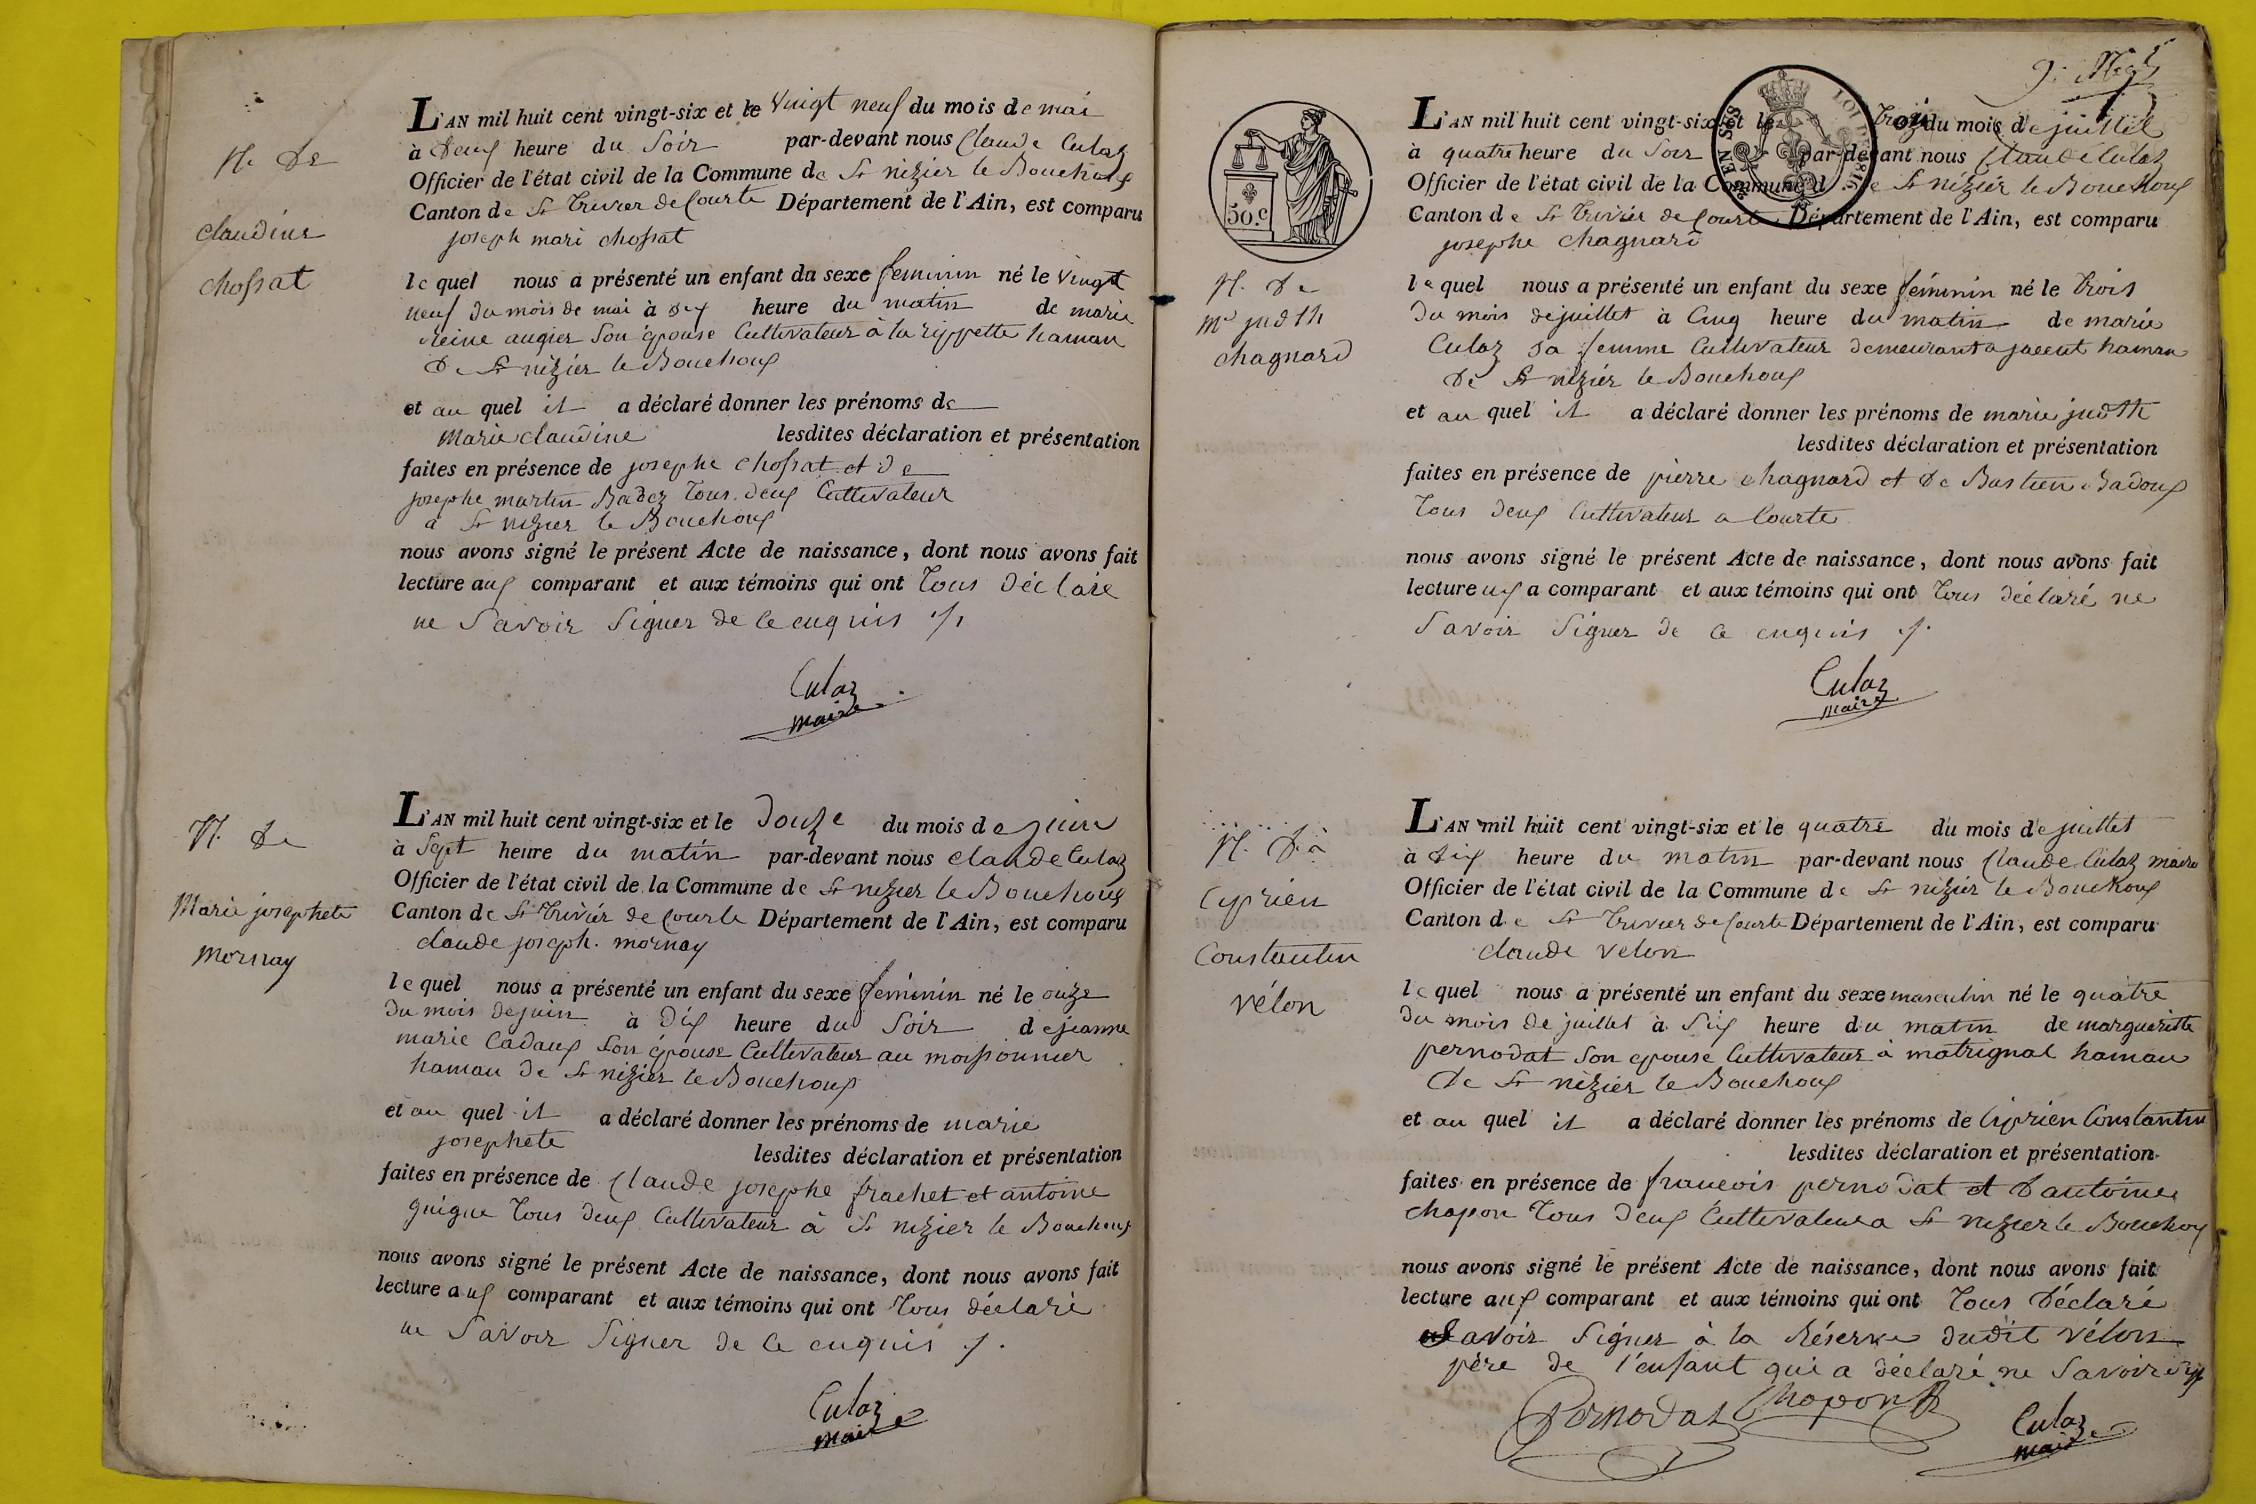 N. De
claudine
chossat
L'AN mil huit cent vingt-six et le vingt neuf du mois de mai
à deux heure du Soir par-devant nous Claude Culaz
Officier de l'état civil de la Commune de St nizier le Bouchoux
Canton de St Trivier de Courte Département de l'Ain, est comparu
joseph mari chossat
lequel nous a présenté un enfant du sexe feminin né le vingt
neuf du mois de mai à dix heure du matin de marie
Reine augier Son épouse Cultivateur à la rippette hamau
De St nizier le Bouchoux
et au quel il a déclaré donner les prénoms de
Marie claudine lesdites déclaration et présentation
faites en présence de josephe chossat et de
josephe martin Badez Tous deux Cultivateur
a St nizier le Bouchoux
nous avons signé le présent Acte de naissance, dont nous avons fait
lecture aux comparant et aux témoins qui ont Tous Déclaré
ne Savoir Signer de ce enquis ./.
Culaz
maire
N. De
Marie josephete
mornay
L'AN mil huit cent vingt-six et le Douze du mois de juin
à Sept heure du matin par-devant nous claude Culaz
Officier de l'état civil de la Commune de St nizier le Bouchoux
Canton de St Trivier de Courte Département de l'Ain, est comparu
claude joseph. mornay
lequel nous a présenté un enfant du sexe féminin né le onze
du mois de juin à Dix heure du Soir de jeanne
marie Cadaux Son épouse Cultivateur au moissonnier
hamau de St nizier le Bouchoux
et au quel il a déclaré donner les prénoms de marie
josephete lesdites déclaration et présentation
faites en présence de Claude josephe frachet et antoine
guigue Tous Deux Cultivateur à St nizier le Bouchoux
nous avons signé le présent Acte de naissance, dont nous avons fait
lecture aux comparant et aux témoins qui ont Tous déclaré
ne Savoir Signer De ce enquis ./.
Culaz
maire
50.c
N. De
Me judth
chagnard
L'AN mil huit cent vingt-six et le Trois du mois de juillet
à quatre heure du Soir par-devant nous Claude Culaz
Officier de l'état civil de la Commune de St nizier le Bouchoux
Canton de St Trivier de Courte Département de l'Ain, est comparu
josephe chagnard
lequel nous a présenté un enfant du sexe féminin né le Trois
Du mois de juillet à Cinq heure du matin de marie
Culaz Sa femme Cultivateur demeurant a jacent hamau
De St nizier le Bouchoux
et au quel il a déclaré donner les prénoms de marie judth
lesdites déclaration et présentation
faites en présence de pierre chagnard et de Bastien Badoux
Tous Deux Cultivateur a Courte
nous avons signé le présent Acte de naissance, dont nous avons fait
lecture aux a comparant et aux témoins qui ont Tous déclaré ne
Savoir Signer De ce enquis ./.
Culaz
maire
N. De
Ciprien
Constantin
vélon
L'AN mil huit cent vingt-six et le quatre du mois de juillet
à Dix heure du matin par-devant nous Claude Culaz maire
Officier de l'état civil de la Commune de St nizier le Bouchoux
Canton de St Trivier de Courte Département de l'Ain, est comparu
claude velon
lequel nous a présenté un enfant du sexe masculin né le quatre
du mois de juillet à Six heure du matin de margueritte
pernodat Son epouse Cultivateur à matrignat hamau
De St nizier le Bouchoux
et au quel il a déclaré donner les prénoms de Ciprien Constantin
lesdites déclaration et présentation
faites en présence de francois pernodat et D'antoine
chapon Tous Deux Cultivateur a St nizier le Bouchoux
nous avons signé le présent Acte de naissance, dont nous avons fait
lecture aux comparant et aux témoins qui ont Tous Déclaré
Savoir Signer à la Réserve dudit vélon
père de l'enfant qui a déclaré ne Savoir
Pernodat Chapon
Culaz
maire